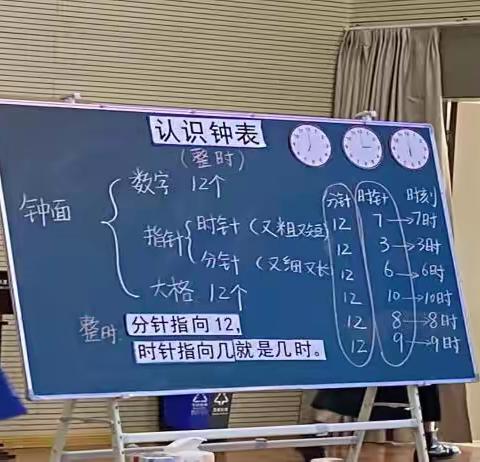 认识钟表
(整时)
钟面
数字 12个
指针
时针 (又粗又短)
分针 (又细又长
大格 12个
整时
分针指向12,
时针指向几就是几时。
分针 时针 时刻
12 7→7时
12 3→3时
12 6→6时
12 10→10时
12 8→8时
12 9→9时